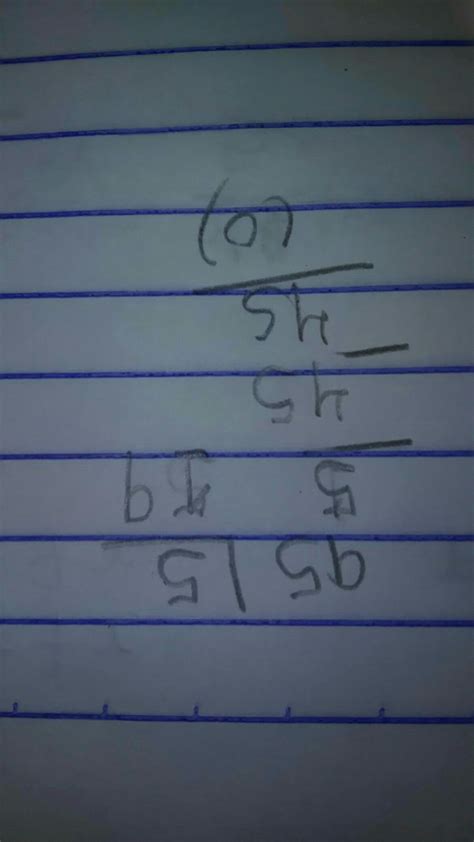 95 | 5
5 19
45
- 45
(0)